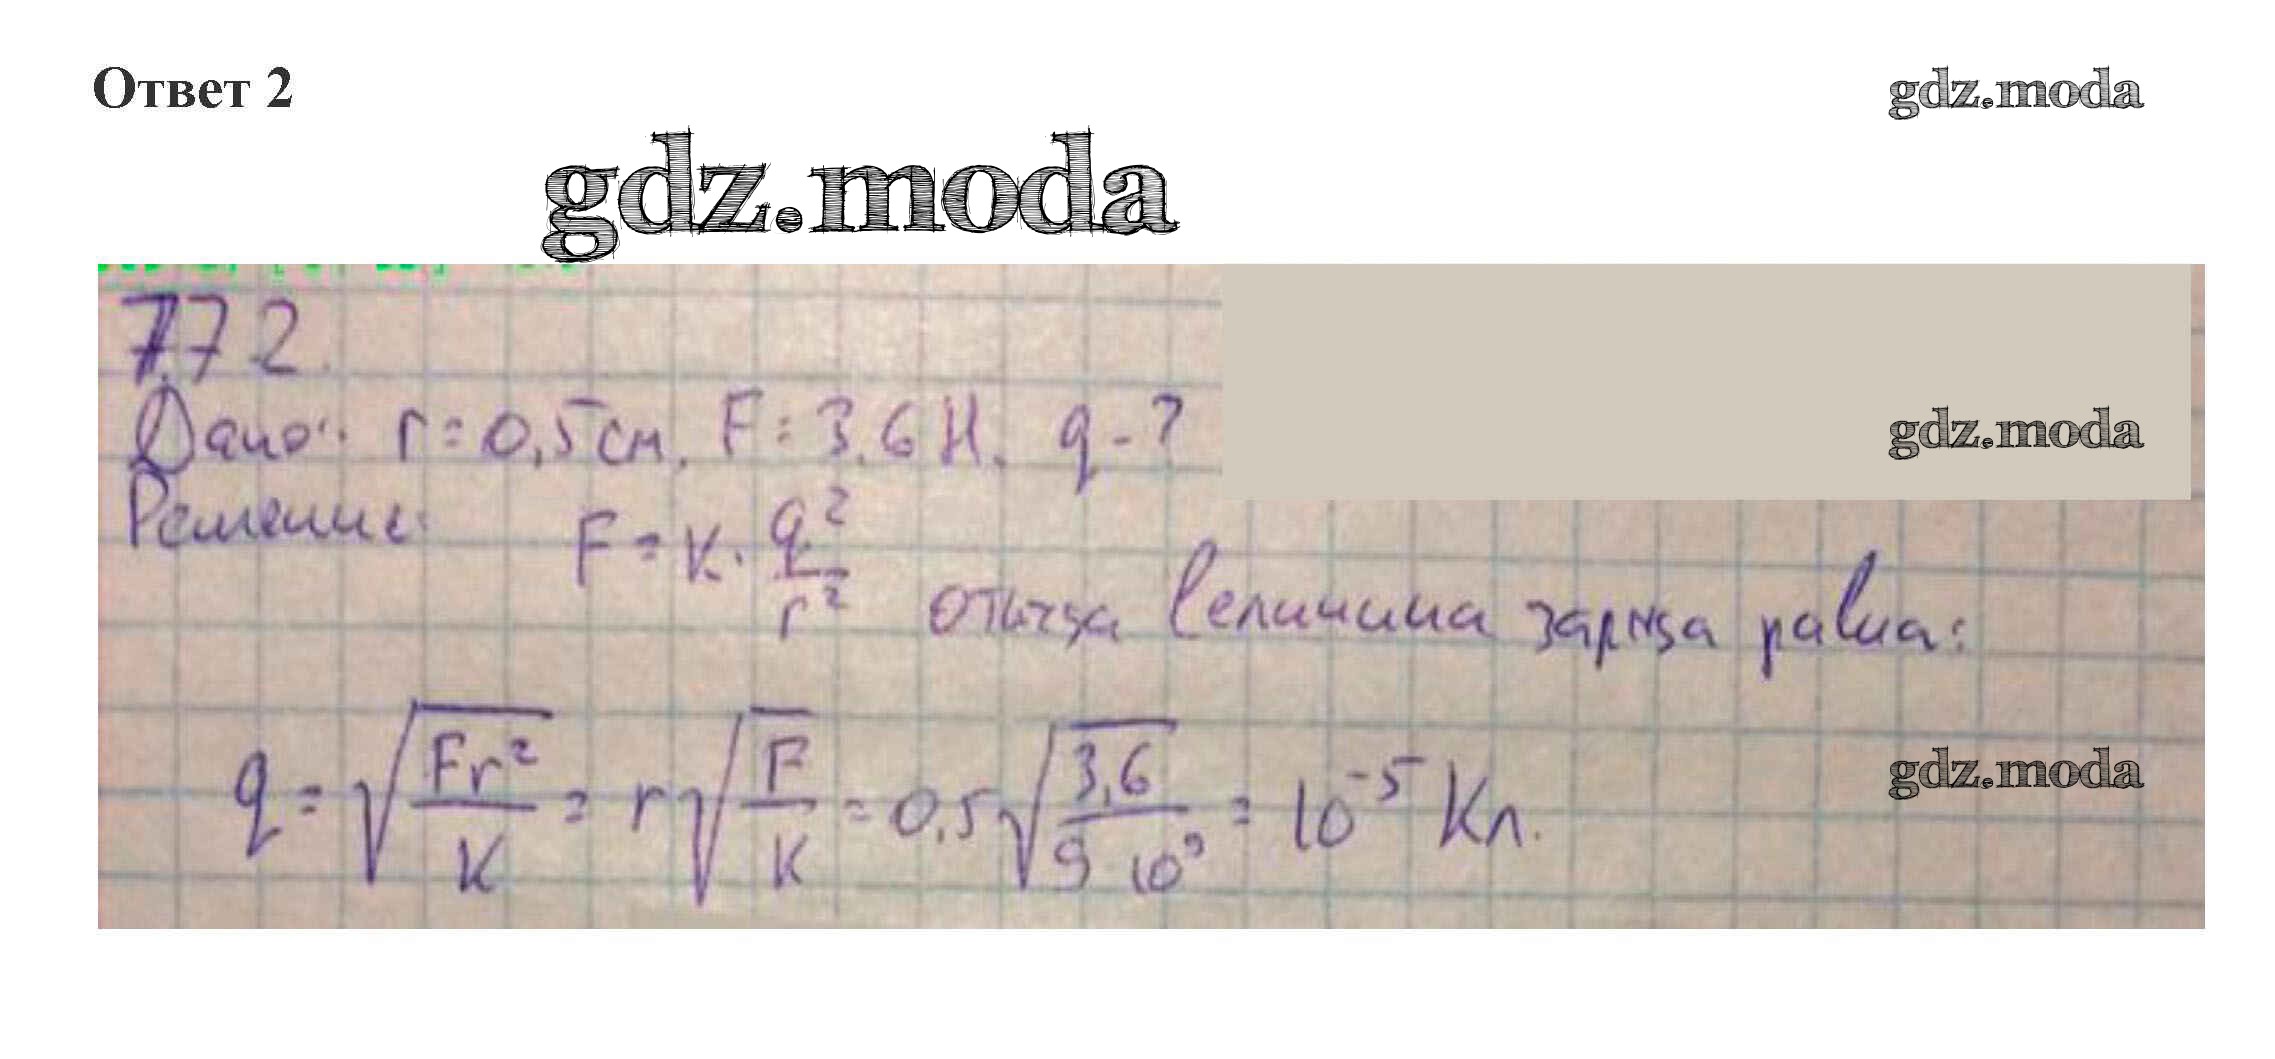 Ответ 2
gdz.moda
gdz.moda
772.
Дано: r = 0,5 см, F = 3,6 Н. q - ?
gdz.moda
Решение: F = k · q²/r² отсюда величина заряда равна:
q = √(Fr²/k) = r√(F/k) = 0,5√(3,6/9·10⁹) = 10⁻⁵ Кл.
gdz.moda